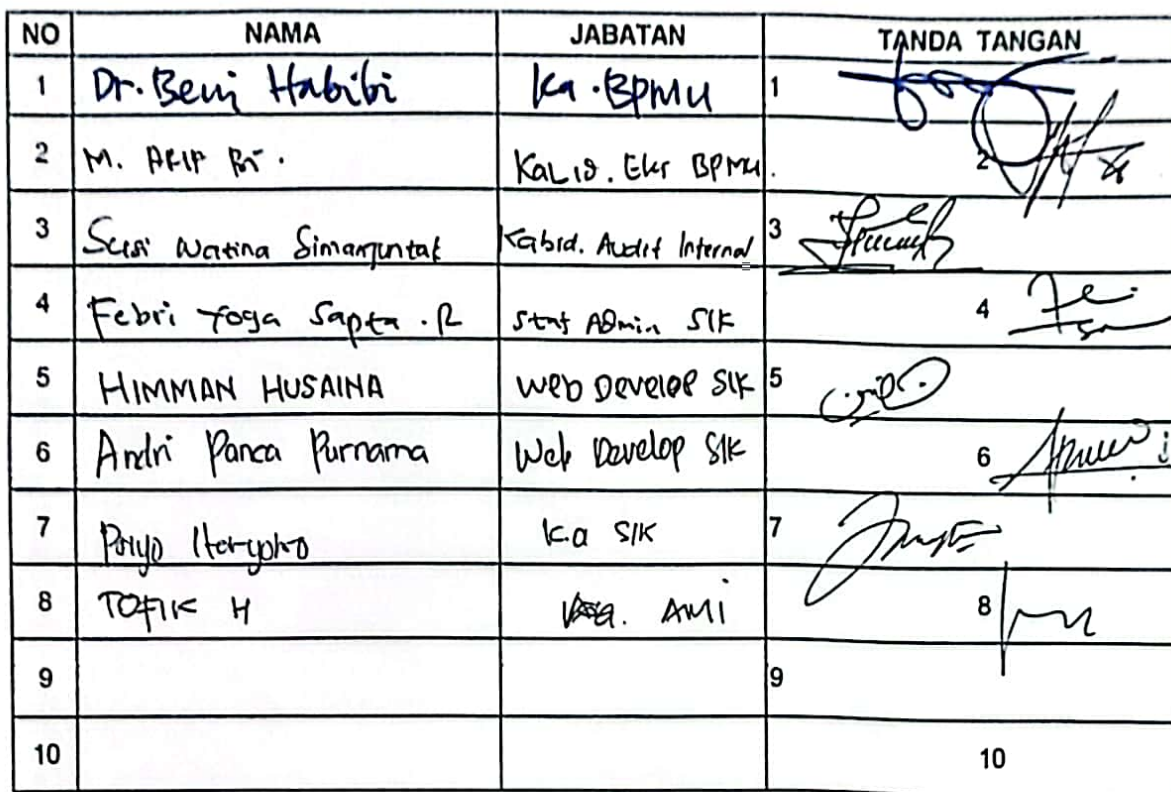 NO NAMA JABATAN TANDA TANGAN
1 Dr. Beni Habibi Ka. BPMU 1
2 M. ARIF Kabid. BPMU. 2
3 Susi Watina Simanjuntak Kabid. Audit Internal 3
4 Febri Yoga Sapta. R Staf Admin SIK 4
5 HIMMAN HUSAINA Web Develop SIK 5
6 Andri Panca Purnama Web Develop SIK 6
7 Priyo Haryoko Ka SIK 7
8 TOFIK H AMI 8
9 9
10 10